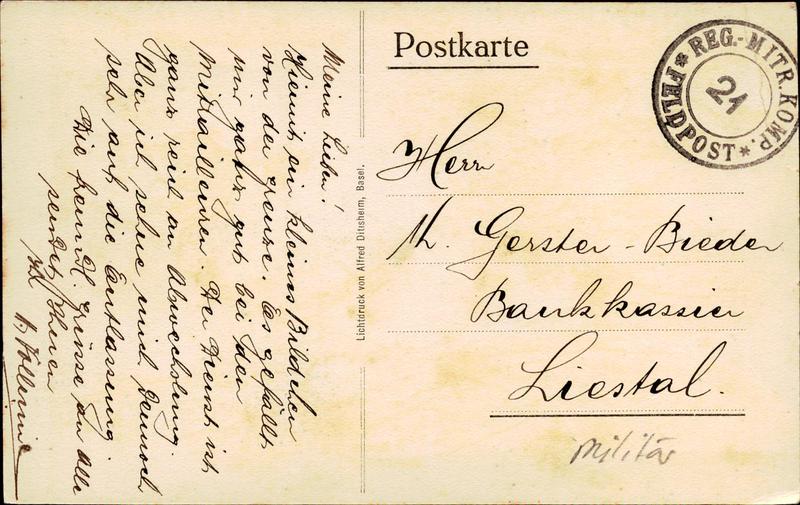 Postkarte
REG.-MITR.KOMP.
21
* FELDPOST *
Herr
M. Gerster-Bieder
Bankkassier
Liestal.
Militär
Lichtdruck von Alfred Ditisheim, Basel.
Meine Lieben!
Hiemit ein kleines Bildchen
von der Grenze. Es gefällt
mir ganz gut bei den
Mitrailleuren. Der Dienst ist
ganz reich an Abwechslung.
Aber ich sehne mich dennoch
sehr auf die Entlassung.
Die freundl. Grüsse an Alle
sendet Ihnen